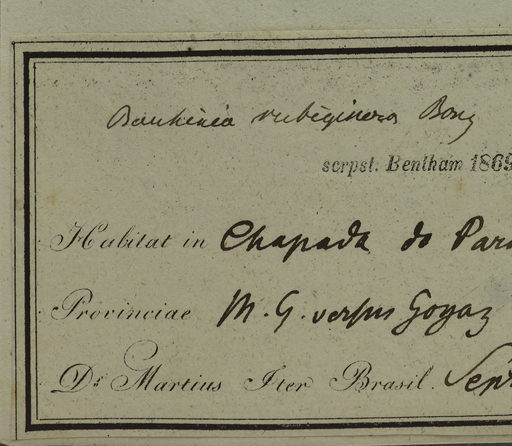 Bauhinia rubiginosa Bong
scrpst. Bentham 1869
Habitat in Chapada do Para
Provinciae M. G. versus Goyaz
Dr Martius Iter Brasil. Sept